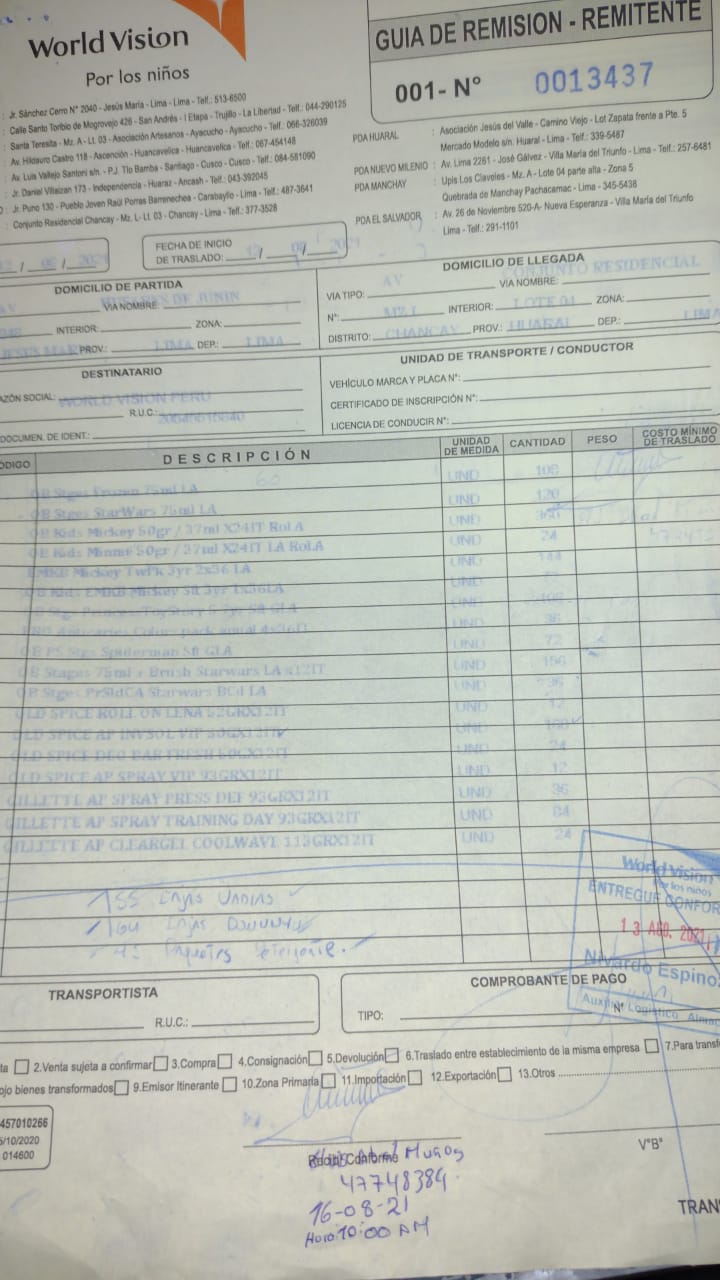 World Vision
Por los niños
GUIA DE REMISION - REMITENTE
001- Nº 0013437
: Jr. Sánchez Cerro Nº 2040 - Jesús María - Lima - Lima - Telf.: 513-6500
: Calle Santo Toribio de Mogrovejo 426 - San Andrés - I Etapa - Trujillo - La Libertad - Telf.: 044-290125
: Santa Teresita - Mz. A - Lt. 03 - Asociación Artesanos - Ayacucho - Ayacucho - Telf.: 066-326039
: Av. Hildauro Castro 118 - Ascención - Huancavelica - Huancavelica - Telf.: 067-454148
: Av. Luis Vallejo Santoni s/n - P.J. Tío Bamba - Santiago - Cusco - Cusco - Telf.: 084-581090
: Jr. Daniel Villaizan 173 - Independencia - Huaraz - Ancash - Telf.: 043-392045
: Jr. Puno 130 - Pueblo Joven Raúl Porras Barrenechea - Carabayllo - Lima - Telf.: 487-3641
: Conjunto Residencial Chancay - Mz. L- Lt. 03 - Chancay - Lima - Telf.: 377-3528
PDA HUARAL : Asociación Jesús del Valle - Camino Viejo - Lot Zapata frente a Pte. 5
Mercado Modelo s/n. Huaral - Lima - Telf.: 339-5487
PDA NUEVO MILENIO : Av. Lima 2261 - José Gálvez - Villa María del Triunfo - Lima - Telf.: 257-6481
PDA MANCHAY : Upis Los Claveles - Mz. A - Lote 04 parte alta - Zona 5
Quebrada de Manchay Pachacamac - Lima - 345-5438
PDA EL SALVADOR : Av. 26 de Noviembre 520-A- Nueva Esperanza - Villa María del Triunfo
Lima - Telf.: 291-1101
FECHA DE INICIO
DE TRASLADO:
DOMICILIO DE PARTIDA
VIA NOMBRE: DE JUNIN
INTERIOR: ZONA:
PROV.: LIMA DEP.: LIMA
DOMICILIO DE LLEGADA
VIA TIPO: AV VIA NOMBRE: CONJUNTO RESIDENCIAL
Nº: MZ L INTERIOR: LOTE 04 ZONA:
DISTRITO: CHANCAY PROV.: HUARAL DEP.: LIMA
DESTINATARIO
AZÓN SOCIAL: WORLD VISION PERU
R.U.C.:
DOCUMEN. DE IDENT.:
UNIDAD DE TRANSPORTE / CONDUCTOR
VEHÍCULO MARCA Y PLACA Nº:
CERTIFICADO DE INSCRIPCIÓN Nº:
LICENCIA DE CONDUCIR Nº:
ÓDIGO DESCRIPCIÓN UNIDAD DE MEDIDA CANTIDAD PESO COSTO MÍNIMO DE TRASLADO
OB Stges Frozen 75ml LA UND 108
OB Stges StarWars 75ml LA UND 120
OB Kids Mickey 50gr / 37ml X24IT RoLA UND
OB Kids Minnie 50gr / 37ml X24IT LA RoLA UND 24
EMKB Mickey TwPk 3yr 2x36 LA UND 144
UND
UND
UND 36
OB PS Stgs Spiderman Sft GLA UND 72
OB Stages 75ml + Brush Starwars LA x12IT UND
OB Stges PrSldCA Starwars BCd LA UND
OLD SPICE ROLL ON LENA 52GRX12IT UND 12
OLD SPICE AP INVSOL VIP 50GX12IT UND
OLD SPICE DEO BAR FRESH 50GX12IT UND 24
OLD SPICE AP SPRAY VIP 93GRX12IT UND 12
GILLETTE AP SPRAY PRESS DEF 93GRX12IT UND 36
GILLETTE AP SPRAY TRAINING DAY 93GRX12IT UND 84
GILLETTE AP CLEARGEL COOLWAVE 113GRX12IT UND 24
155 Cajas Varias
164 Cajas Downy
Paquetes Detergente.
World Vision
Por los niños
ENTREGUE CONFOR
13 AGO. 2021
Nivardo Espino
Auxiliar Logístico Almac
TRANSPORTISTA
R.U.C.:
COMPROBANTE DE PAGO
TIPO: Nº
ta 2.Venta sujeta a confirmar 3.Compra 4.Consignación 5.Devolución 6.Traslado entre establecimiento de la misma empresa 7.Para transf
ojo bienes transformados 9.Emisor Itinerante 10.Zona Primaria 11.Importación 12.Exportación 13.Otros
457010266
5/10/2020
014600
Recibí Conforme
Muños
47748384
16-08-21
Hora: 10:00 AM
V°B°
TRAN